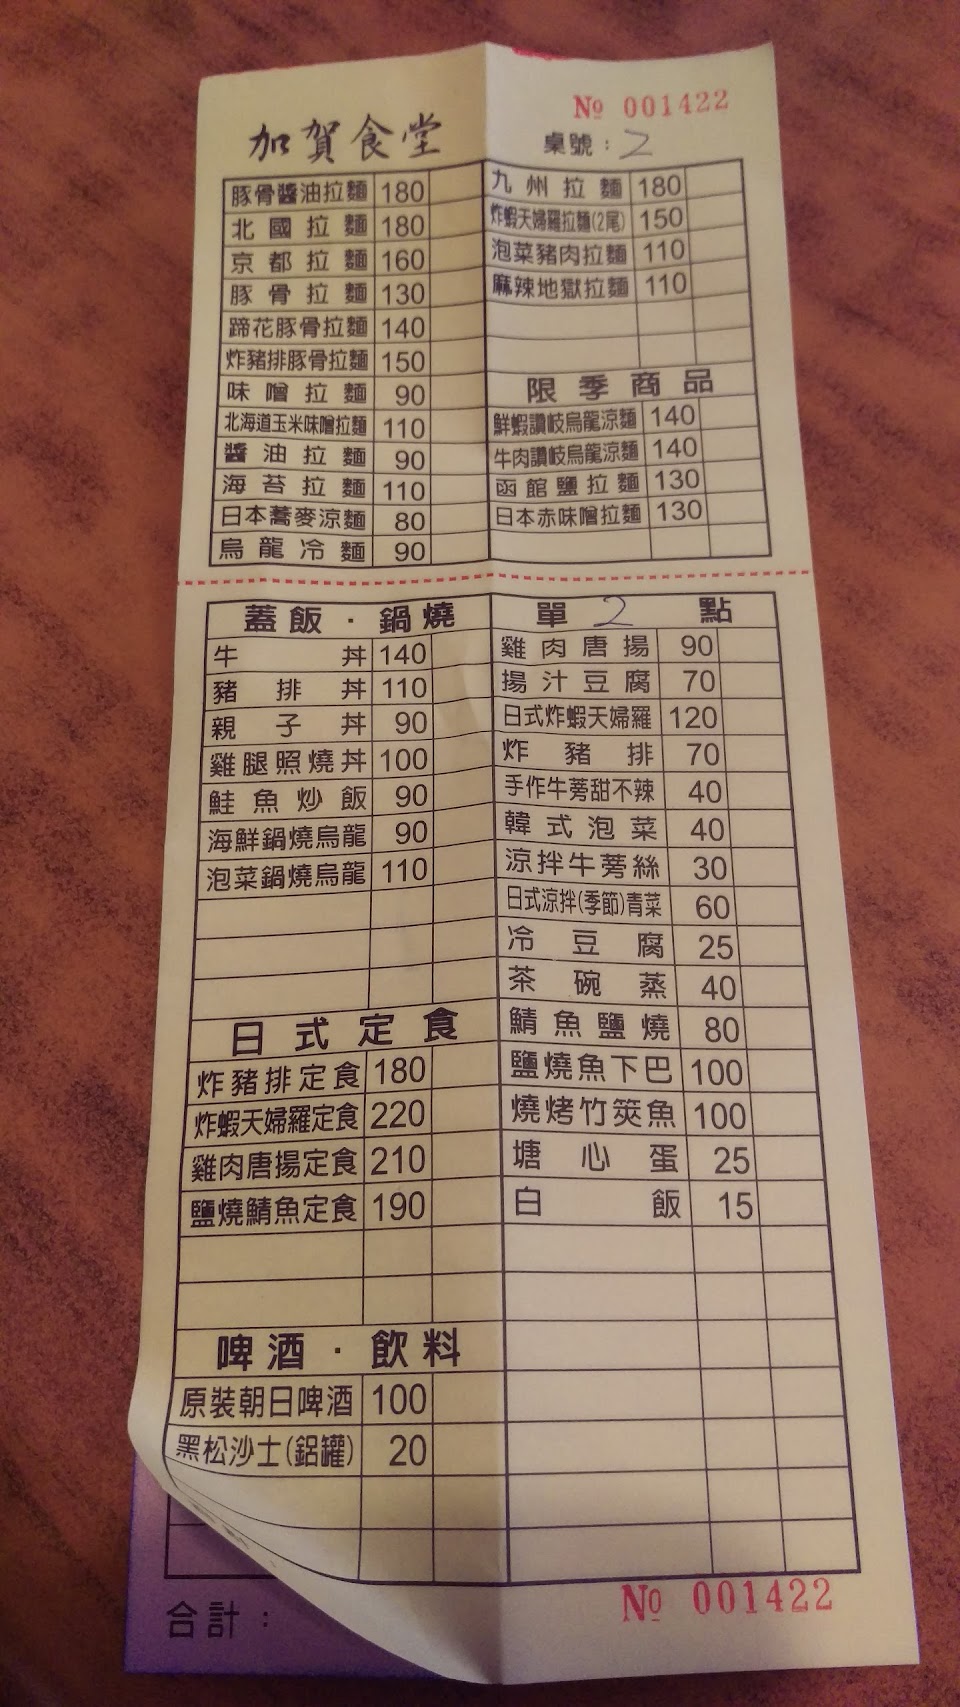 No 001422
加賀食堂
桌號：2
豚骨醬油拉麵 180
北國拉麵 180
京都拉麵 160
豚骨拉麵 130
蹄花豚骨拉麵 140
炸豬排豚骨拉麵 150
味噌拉麵 90
北海道玉米味噌拉麵 110
醬油拉麵 90
海苔拉麵 110
日本蕎麥涼麵 80
烏龍冷麵 90
九州拉麵 180
炸蝦天婦羅拉麵(2尾) 150
泡菜豬肉拉麵 110
麻辣地獄拉麵 110
限季商品
鮮蝦讚岐烏龍涼麵 140
牛肉讚岐烏龍涼麵 140
函館鹽拉麵 130
日本赤味噌拉麵 130
蓋飯．鍋燒
牛丼 140
豬排丼 110
親子丼 90
雞腿照燒丼 100
鮭魚炒飯 90
海鮮鍋燒烏龍 90
泡菜鍋燒烏龍 110
日式定食
炸豬排定食 180
炸蝦天婦羅定食 220
雞肉唐揚定食 210
鹽燒鯖魚定食 190
啤酒．飲料
原裝朝日啤酒 100
黑松沙士(鋁罐) 20
單 2 點
雞肉唐揚 90
揚汁豆腐 70
日式炸蝦天婦羅 120
炸豬排 70
手作牛蒡甜不辣 40
韓式泡菜 40
涼拌牛蒡絲 30
日式涼拌(季節)青菜 60
冷豆腐 25
茶碗蒸 40
鯖魚鹽燒 80
鹽燒魚下巴 100
燒烤竹筴魚 100
塘心蛋 25
白飯 15
合計：
No 001422